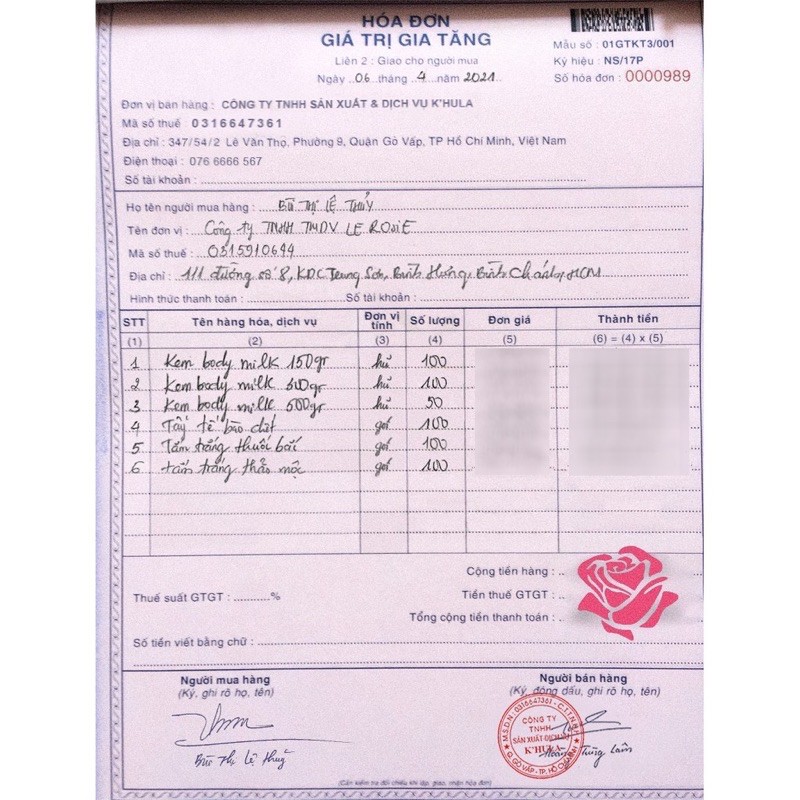 HÓA ĐƠN
GIÁ TRỊ GIA TĂNG
Liên 2 : Giao cho người mua
Ngày ..06..tháng ..4..năm 2021
Mẫu số : 01GTKT3/001
Ký hiệu : NS/17P
Số hóa đơn : 0000989
Đơn vị bán hàng : CÔNG TY TNHH SẢN XUẤT & DỊCH VỤ K'HULA
Mã số thuế : 0316647361
Địa chỉ : 347/54/2 Lê Văn Thọ, Phường 9, Quận Gò Vấp, TP Hồ Chí Minh, Việt Nam
Điện thoại : 076 6666 567
Số tài khoản :
Họ tên người mua hàng : BÙI THỊ LỆ THỦY
Tên đơn vị : Công ty TNHH TMDV LE ROSIE
Mã số thuế : 0315910644
Địa chỉ : 111 đường số 8, KDC Trung Sơn, Bình Hưng, Bình Chánh, HCM
Hình thức thanh toán : Số tài khoản :
STT Tên hàng hóa, dịch vụ Đơn vị tính Số lượng Đơn giá Thành tiền
(1) (2) (3) (4) (5) (6) = (4) x (5)
1 Kem body milk 150gr hủ 100
2 Kem body milk 300gr hủ 100
3 Kem body milk 500gr hủ 50
4 Tẩy tế bào chết gói 100
5 Tắm trắng thuốc bắc gói 100
6 tắm trắng thảo mộc gói 100
Cộng tiền hàng :
Thuế suất GTGT : ..........% Tiền thuế GTGT :
Tổng cộng tiền thanh toán :
Số tiền viết bằng chữ :
Người mua hàng
(Ký, ghi rõ họ, tên)
Bùi Thị Lệ Thủy
Người bán hàng
(Ký, đóng dấu, ghi rõ họ, tên)
M.S.D.N : 0316647361 - C.T.T.N.H.H
CÔNG TY
TNHH
SẢN XUẤT DỊCH VỤ
K'HULA
Q. GÒ VẤP - TP. HỒ CHÍ MINH
Hoàng Tùng Lâm
(Cần kiểm tra đối chiếu khi lập, giao, nhận hóa đơn)